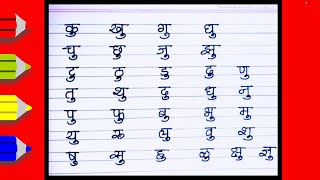 कु खु गु घु
चु छु जु झु
टु ठु डु ढु णु
तु थु दु धु नु
पु फु बु भु मु
यु रु लु वु शु
षु सु हु ळु क्षु ज्ञु